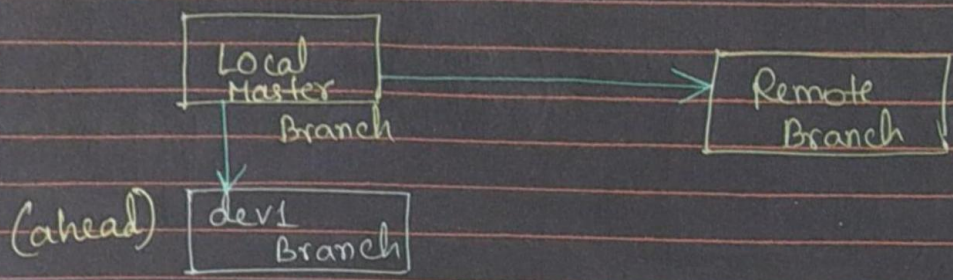 Local
Master
Branch
Remote
Branch
(ahead)
dev1
Branch